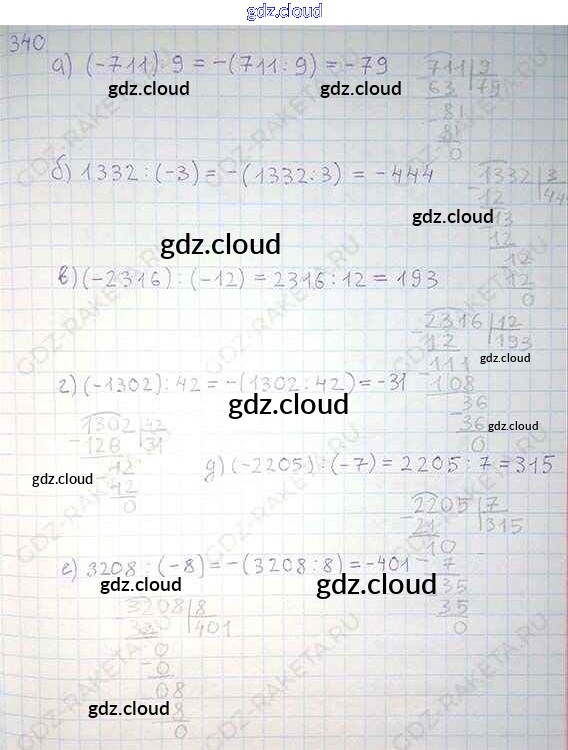 gdz.cloud
340.
а) (-711):9 = -(711:9) = -79
711 9
63 79
- 81
81
0
gdz.cloud gdz.cloud
б) 1332 : (-3) = -(1332:3) = -444
- 1332 3
12 444
- 13
12
- 12
12
0
gdz.cloud
gdz.cloud
в) (-2316) : (-12) = 2316 : 12 = 193
- 2316 12
12 193
- 111
108
- 36
36
0
gdz.cloud
г) (-1302) : 42 = -(1302 : 42) = -31
- 1302 42
126 31
- 42
42
0
gdz.cloud
gdz.cloud
gdz.cloud
д) (-2205) : (-7) = 2205 : 7 = 315
- 2205 7
21 315
10
- 7
35
35
0
е) 3208 : (-8) = -(3208 : 8) = -401
gdz.cloud gdz.cloud
3208 8
401
0
- 0
08
8
0
gdz.cloud
GDZ-RAKETA.RU